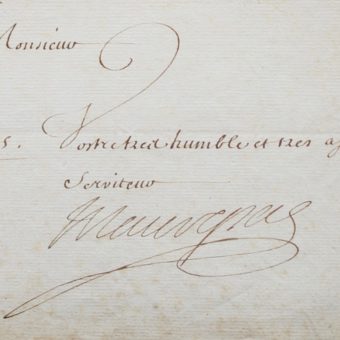 Monsieur
s. Vostre tred humble et tres a
Serviteur